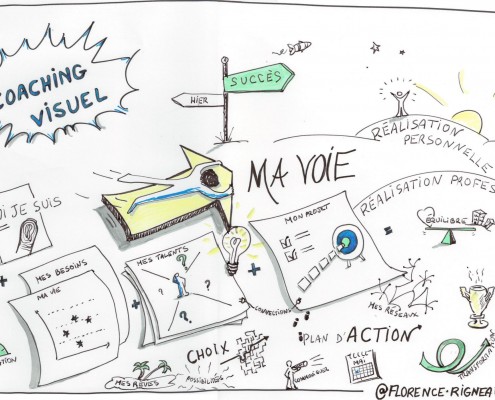 COACHING
VISUEL
SUCCÈS
HIER
MA VOIE
RÉALISATION
PERSONNELLE
RÉALISATION PROFES
I JE SUIS
MES BESOINS
MA VIE
MES TALENTS
?
?
?
?
MON PROJET
ÉQUILIBRE
MES RÉSEAUX
CONVICTIONS
PLAN D'ACTION
CHOIX
POSSIBILITÉS
MES RÊVES
MAI
TRANSFORMATION
@FLORENCE.RIGNEA